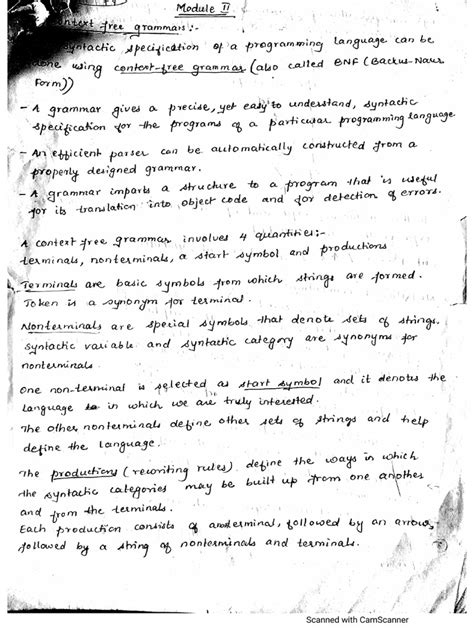 Module II
Context free grammars:-
Syntactic specification of a programming language can be
done using context-free grammar (also called BNF (Backus-Naur
Form))
- A grammar gives a precise, yet easy to understand, syntactic
specification for the programs of a particular programming language
- An efficient parser can be automatically constructed from a
properly designed grammar.
- A grammar imparts a structure to a program that is useful
for its translation into object code and for detection of errors.
A context free grammar involves 4 quantities:-
terminals, nonterminals, a start symbol and productions
Terminals are basic symbols from which strings are formed.
Token is a synonym for terminal.
Nonterminals are special symbols that denote sets of strings.
syntactic variable and syntactic category are synonyms for
nonterminals.
One non-terminal is selected as start symbol and it denotes the
language in which we are truly interested.
The other nonterminals define other sets of strings and help
define the language.
The productions (rewriting rules) define the ways in which
the syntactic categories may be built up from one another
and from the terminals.
Each production consists of a nonterminal, followed by an arrow,
followed by a string of nonterminals and terminals.
Scanned with CamScanner